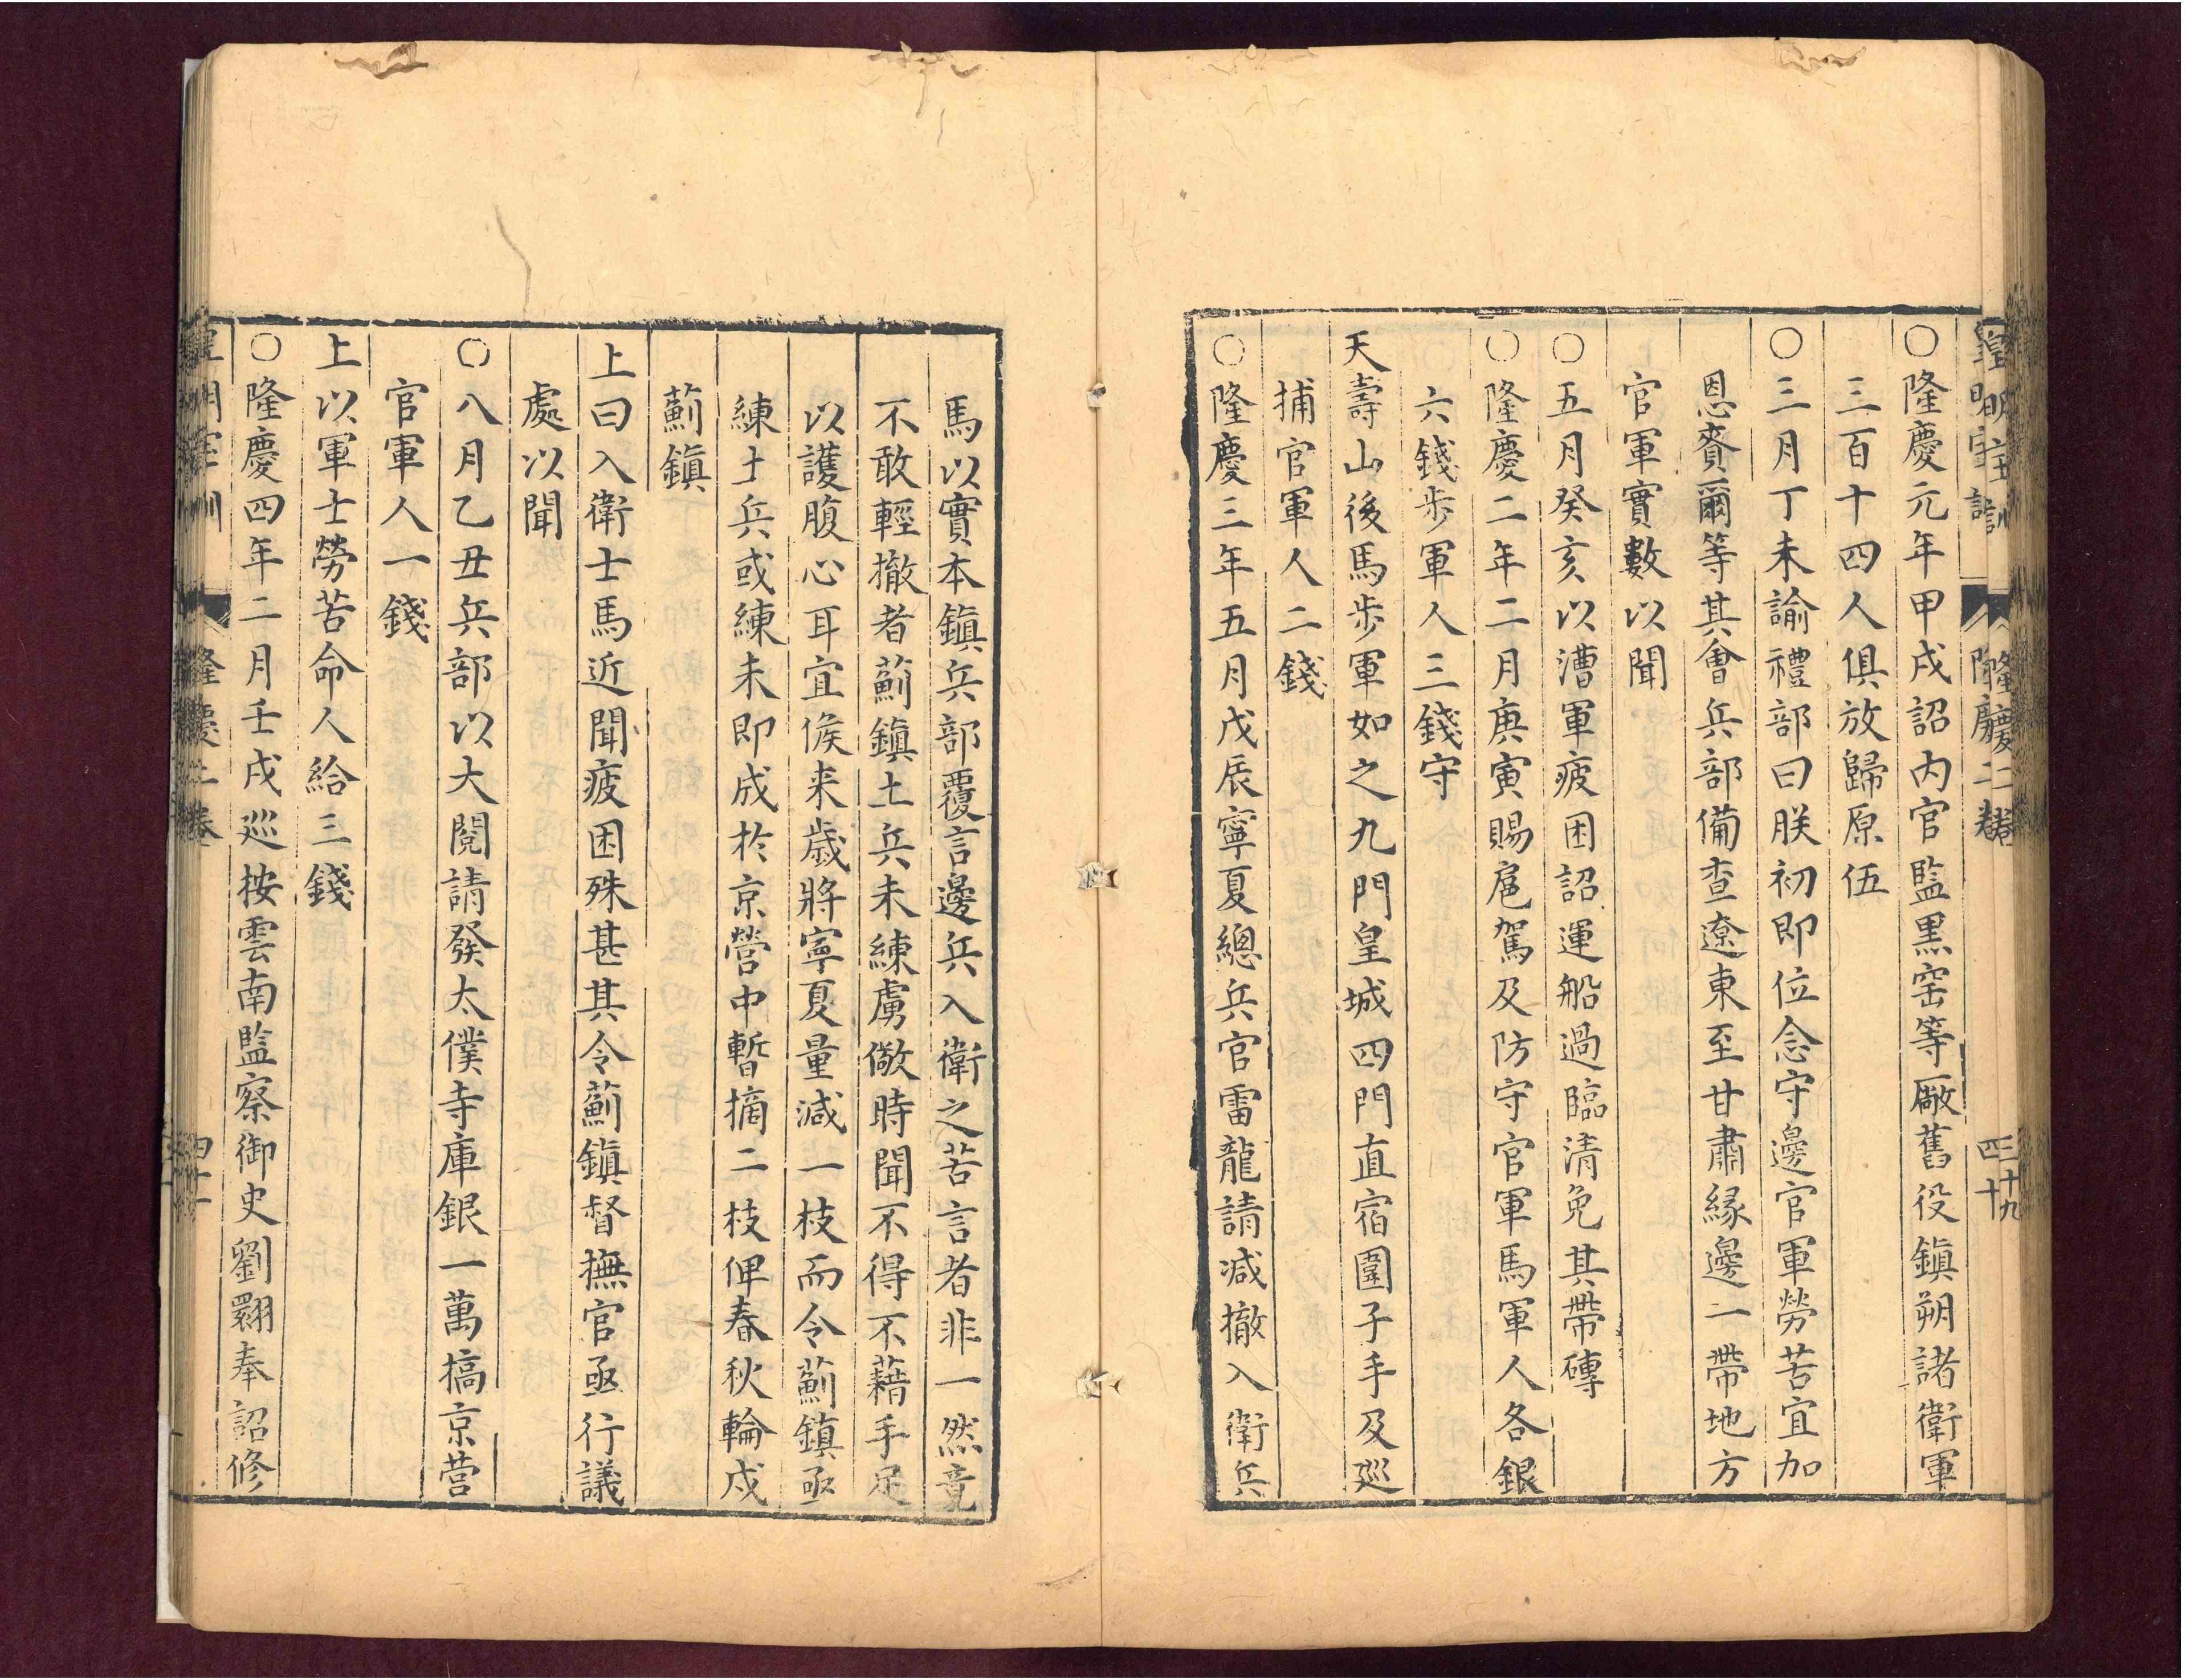 皇明寶訓 隆慶二卷 四十
○隆慶元年甲戌詔内官監黒窑等廠舊役鎮朔諸衛軍
三百十四人俱放歸原伍
○三月丁未諭禮部曰朕初即位念守邊官軍勞苦宜加
恩賚爾等其會兵部備查遼東至甘肅縁邊一帶地方
官軍實數以聞
○五月癸亥以漕軍疲困詔運船過臨清免其帶磚
○隆慶二年二月庚寅賜扈駕及防守官軍馬軍人各銀
六錢步軍人三錢守
天壽山後馬步軍如之九門皇城四門直宿圍子手及廵
捕官軍人二錢
○隆慶三年五月戊辰寧夏總兵官雷龍請減撤入衛兵
馬以實本鎮兵部覆言邊兵入衛之苦言者非一然竟
不敢輕撤者薊鎮土兵未練虜儆時聞不得不藉手足
以護腹心耳宜俟来歲將寧夏量減一枝而令薊鎮亟
練土兵或練未即成於京營中暫摘二枝俾春秋輪戍
薊鎮
上曰入衛士馬近聞疲困殊甚其令薊鎮督撫官亟行議
處以聞
○八月乙丑兵部以大閱請發太僕寺庫銀一萬犒京营
官軍人一錢
上以軍士勞苦命人給三錢
○隆慶四年二月壬戌廵按雲南監察御史劉翾奉詔修
皇明寶訓 隆慶二卷